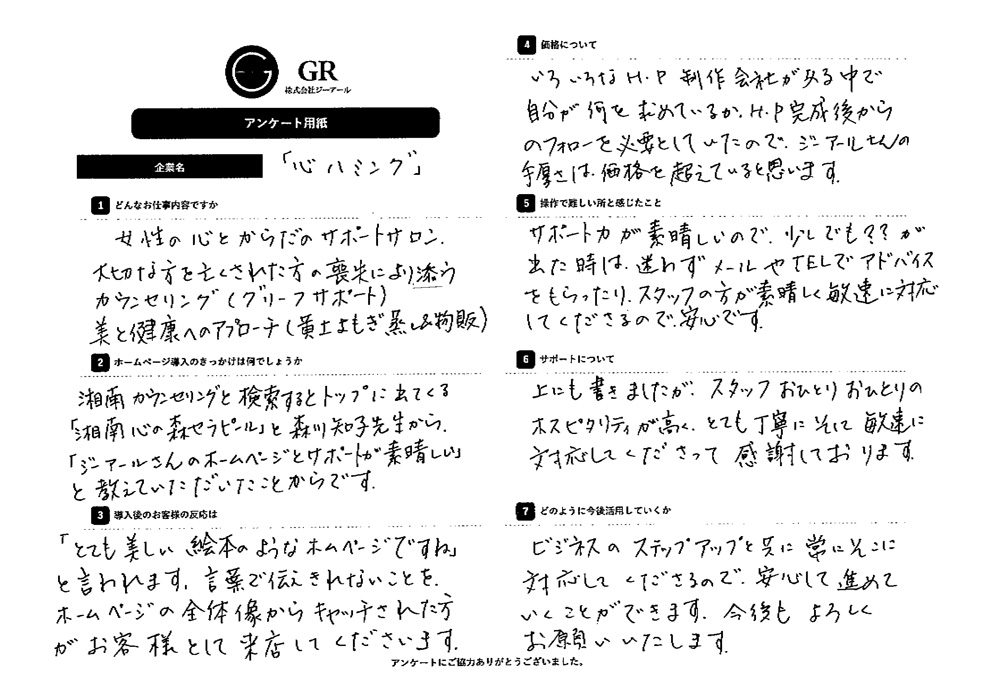 GR
株式会社ジーアール
アンケート用紙
企業名
「心ハミング」
1 どんなお仕事内容ですか
女性の心とからだのサポートサロン.
大切な方を亡くされた方の喪失により添う
カウンセリング(グリーフサポート)
美と健康へのアプローチ(黄土よもぎ蒸し&物販)
2 ホームページ導入のきっかけは何でしょうか
湘南カウンセリングと検索するとトップに出てくる
「湘南心の森セラピール」と森川知子先生から、
「ジーアールさんのホームページとサポートが素晴しい」
と教えていただいたことからです.
3 導入後のお客様の反応は
「とても美しい絵本のようなホームページですね」
と言われます. 言葉で伝えきれないことを、
ホームページの全体像からキャッチされた方
がお客様として来店してくださいます.
4 価格について
いろいろなH・P制作会社がある中で
自分が何を求めているか、H・P完成後から
のフォローを必要としていたので、ジーアールさんの
手厚さは、価格を超えていると思います.
5 操作で難しい所と感じたこと
サポート力が素晴しいので、少しでも??が
出た時は、迷わずメールやTELでアドバイス
をもらったり、スタッフの方が素晴しく敏速に対応
してくださるので、安心です.
6 サポートについて
上にも書きましたが、スタッフおひとりおひとりの
ホスピタリティが高く、とても丁寧にそして敏速に
対応してくださって感謝しております.
7 どのように今後活用していくか
ビジネスのステップアップと共に常にそこに
対応してくださるので、安心して進めて
いくことができます. 今後もよろしく
お願いいたします.
アンケートにご協力ありがとうございました。